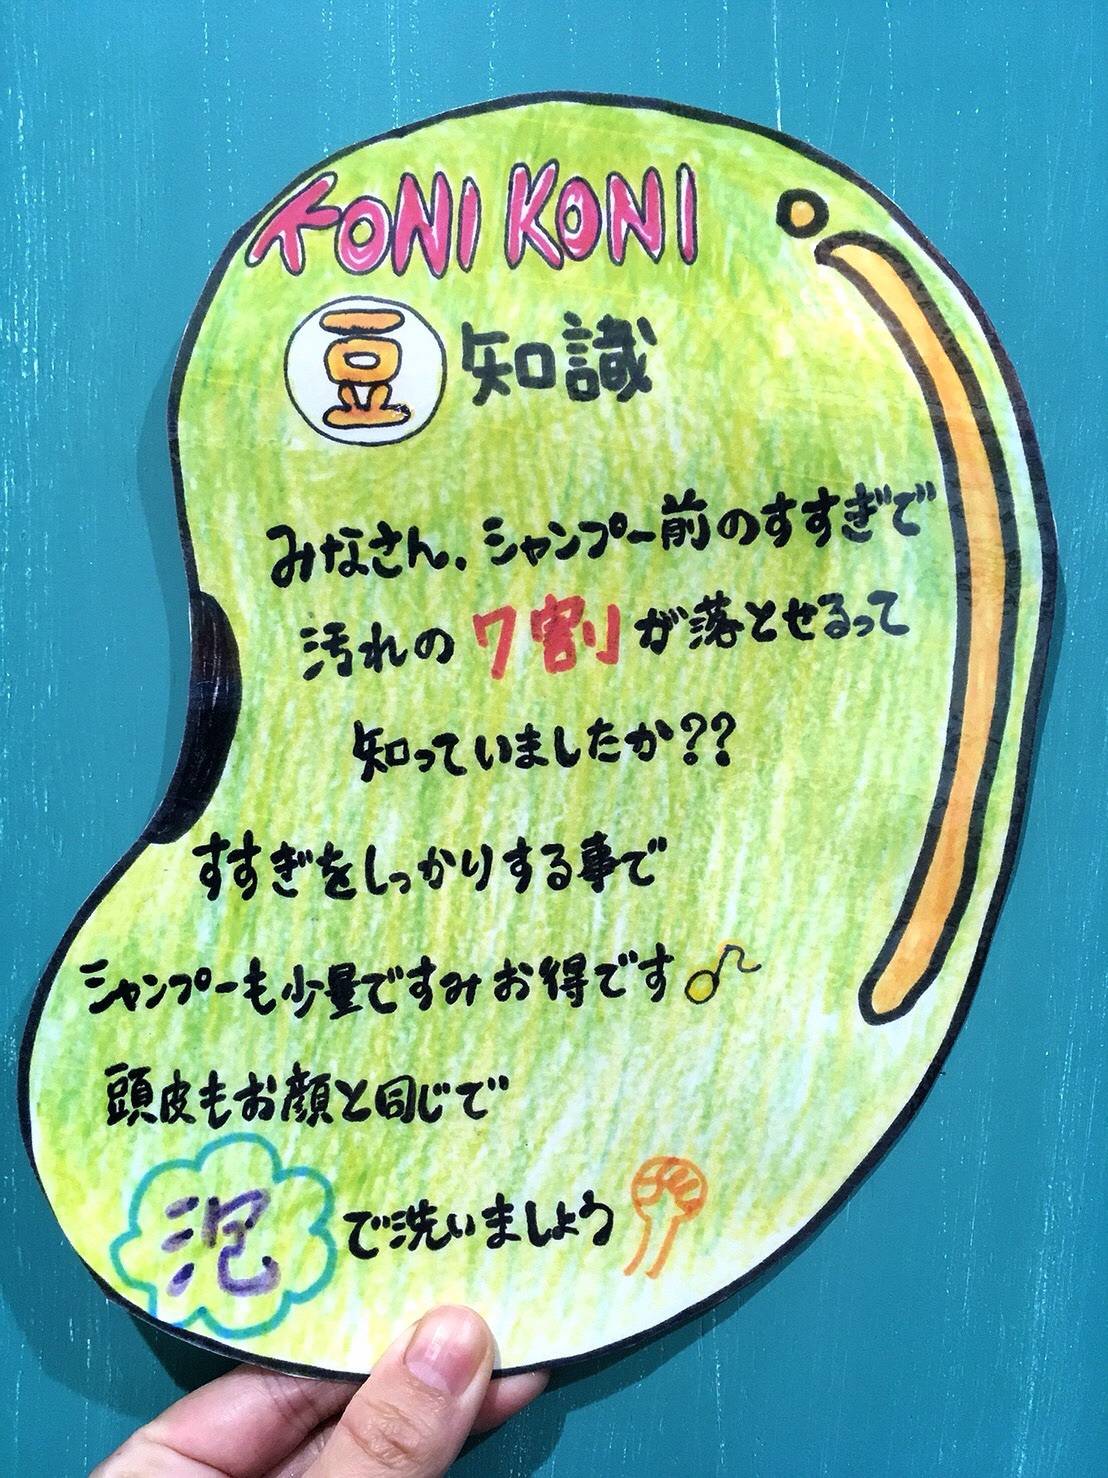 KONI KONI
豆知識
みなさん、シャンプー前のすすぎで
汚れの7割が落とせるって
知っていましたか??
すすぎをしっかりする事で
シャンプーも少量ですみお得です♪
頭皮もお顔と同じで
泡で洗いましょう